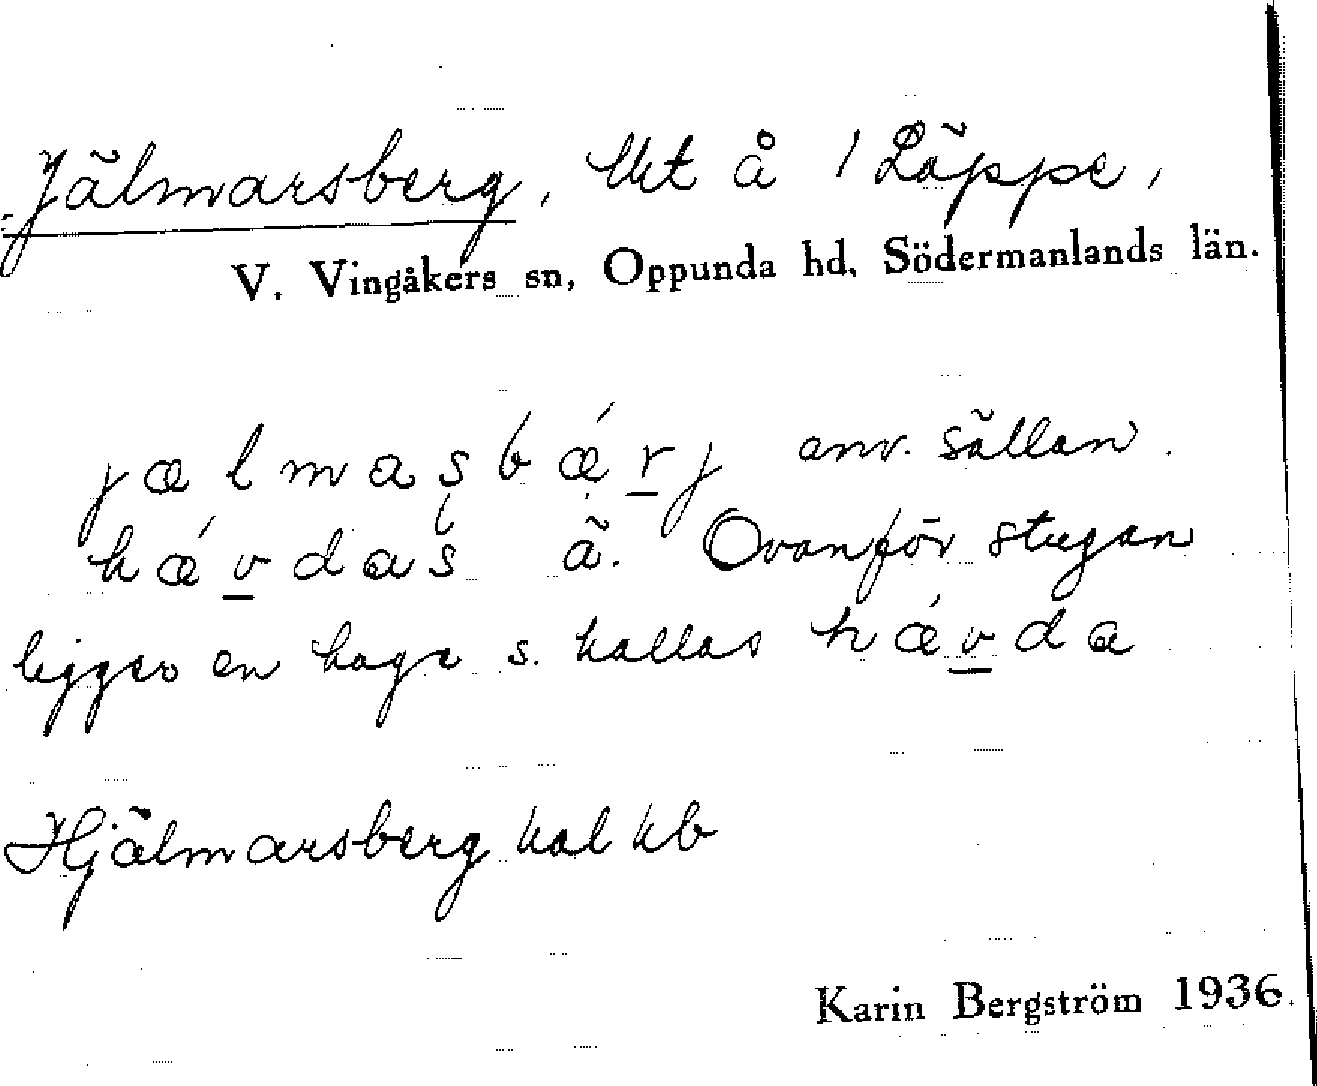 Jälmarsberg, lht å 1 Läppe,
V. Vingåkers sn, Oppunda hd, Södermanlands län.
jælmaşbǽrj anv. sällan.
hǽvdas ä. Ovanför stugan
ligger en hage s. kallas hǽvda
Hjälmarsberg kal kb
Karin Bergström 1936.